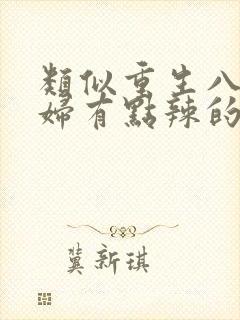 類似重生八
婦有點辣的
冀新琪